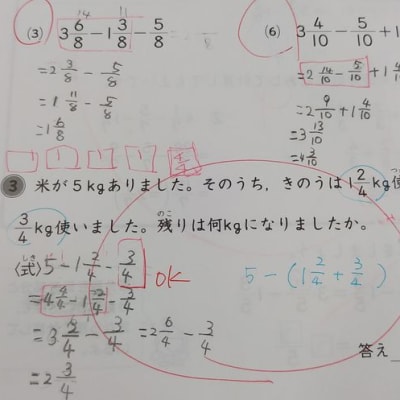 (3) 3 6/8 − 1 3/8 − 5/8
14 11
= 2 3/8 − 5/8
= 1 11/8 − 5/8
= 1 6/8
(6) 3 4/10 − 5/10 + 1
= 2 14/10 − 5/10 + 1 4/10
= 2 9/10 + 1 4/10
= 3 13/10
= 4 3/10
1 1 1 1 4/4
3 米が5kgありました。そのうち,きのうは1 2/4 kg使
3/4 kg使いました。残りは何kgになりましたか。
のこ
〈式〉5 − 1 2/4 − 3/4
しき
OK
5 − (1 2/4 + 3/4)
= 4 4/4 − 1 2/4 − 3/4
= 3 2/4 − 3/4 = 2 6/4 − 3/4
= 2 3/4
答え